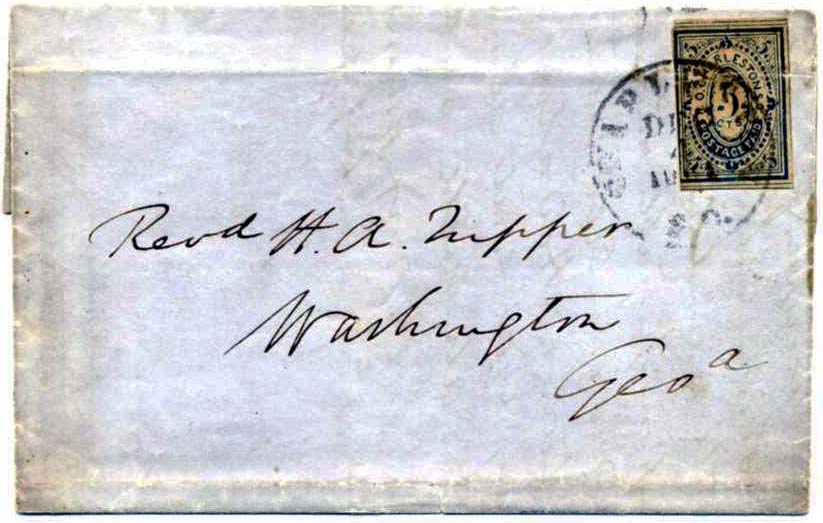 5 5
P.O. CHARLESTON S.C.
5
CTS
POSTAGE PAID
S.C.
Revd H. A. Tupper
Washington
Geoa